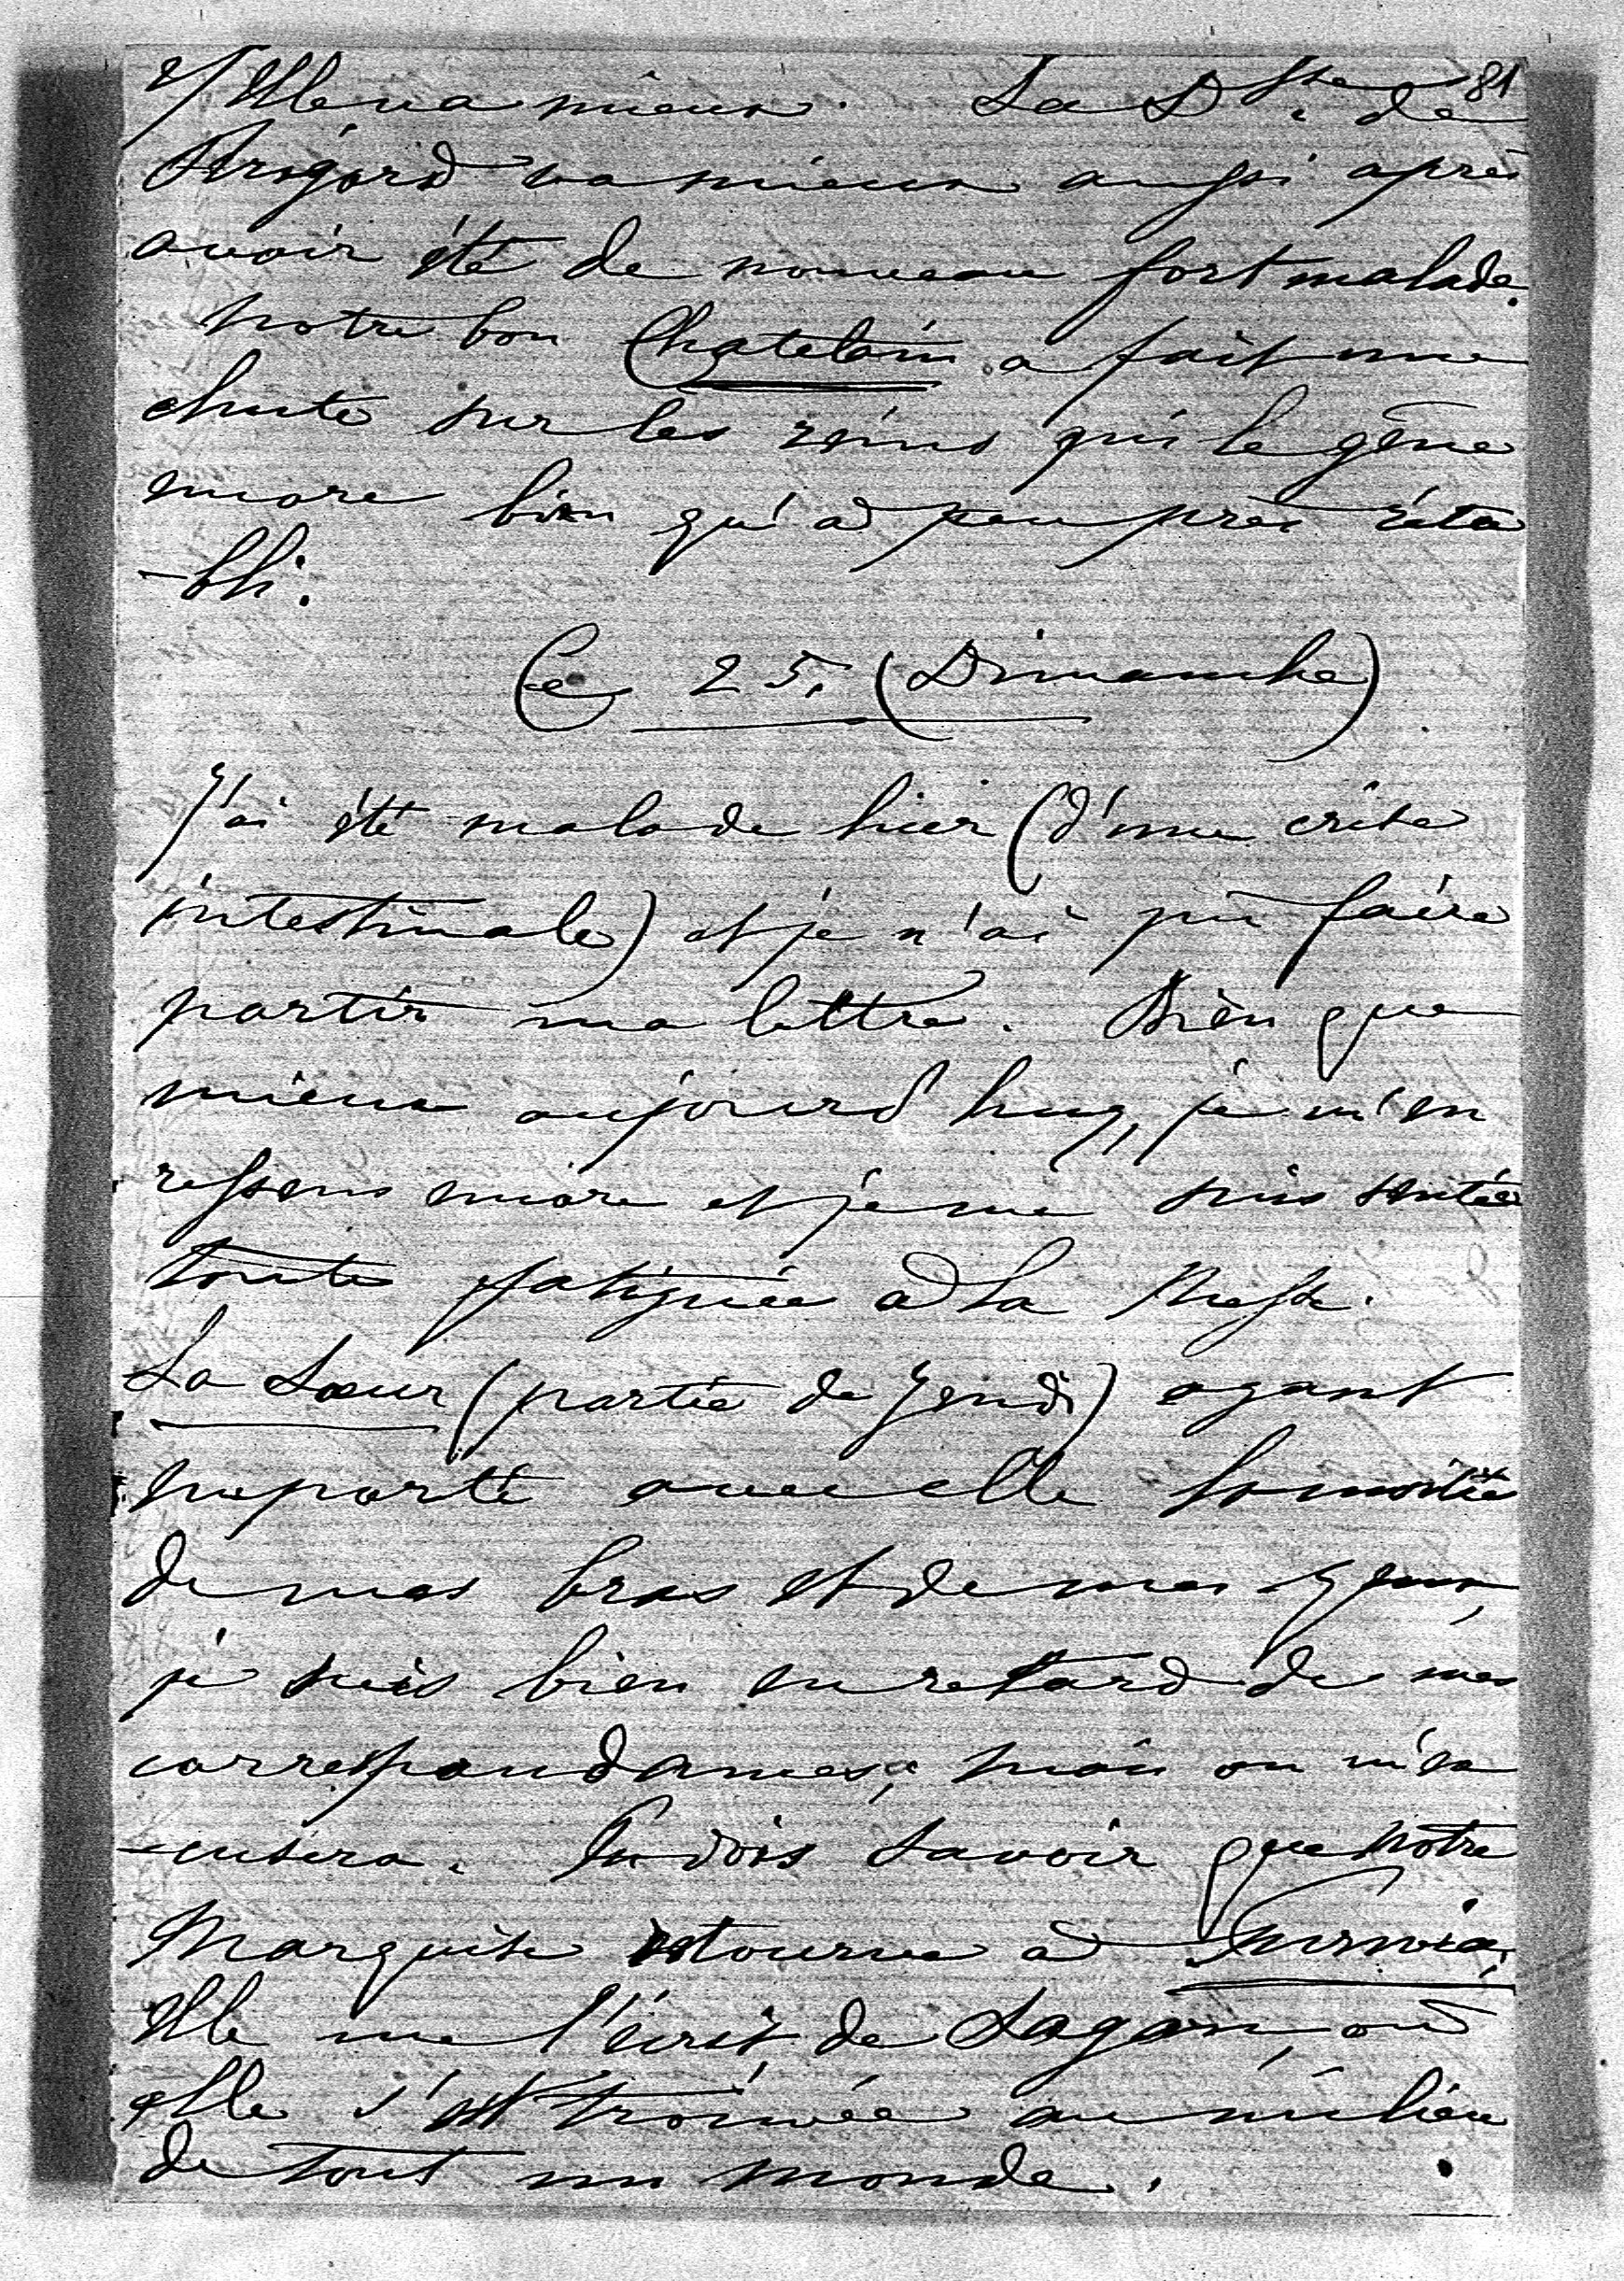 2/ Elle va mieux. La D.sse de 81
Périgord va mieux aussi après
avoir été de nouveau fort malade.
Notre bon Chatelain a fait une
chute sur les reins qui le gêne
encore bien qu'à peu près réta
-bli.
Ce 25. (Dimanche)
J'ai été malade hier (d'une crise
intestinale) et je n'ai pû faire
partir ma lettre. Bien que
mieux aujourd'huy, je m'en
ressens encore et je me suis sentée
toute fatiguée à la Messe.
La Sœur (partie de Jeudi) ayant
emporté avec elle la moitié
de mes bras et de mes yeux,
je suis bien en retard de mes
correspondances; mais on m'ex
-cusera. Tu dois savoir que notre
Marquise retourne à
Elle me l'écrit de Sagan, où
elle s'est trouvée au milieu
de tout un monde.